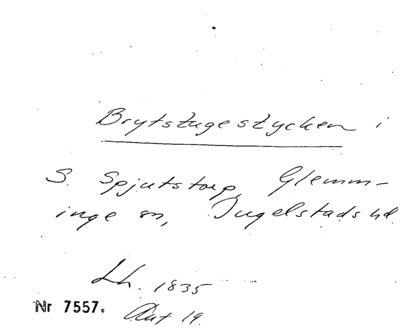 Brytstugestycken i
S. Spjutstorp, Glemm-
inge sn, Ingelstads hd.
Lh. 1835
Nr 7557.
Akt 19.